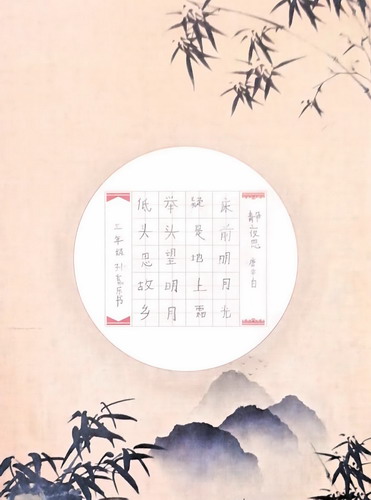 静夜思 唐 李白
床前明月光
疑是地上霜
举头望明月
低头思故乡
三年级 孙乐书